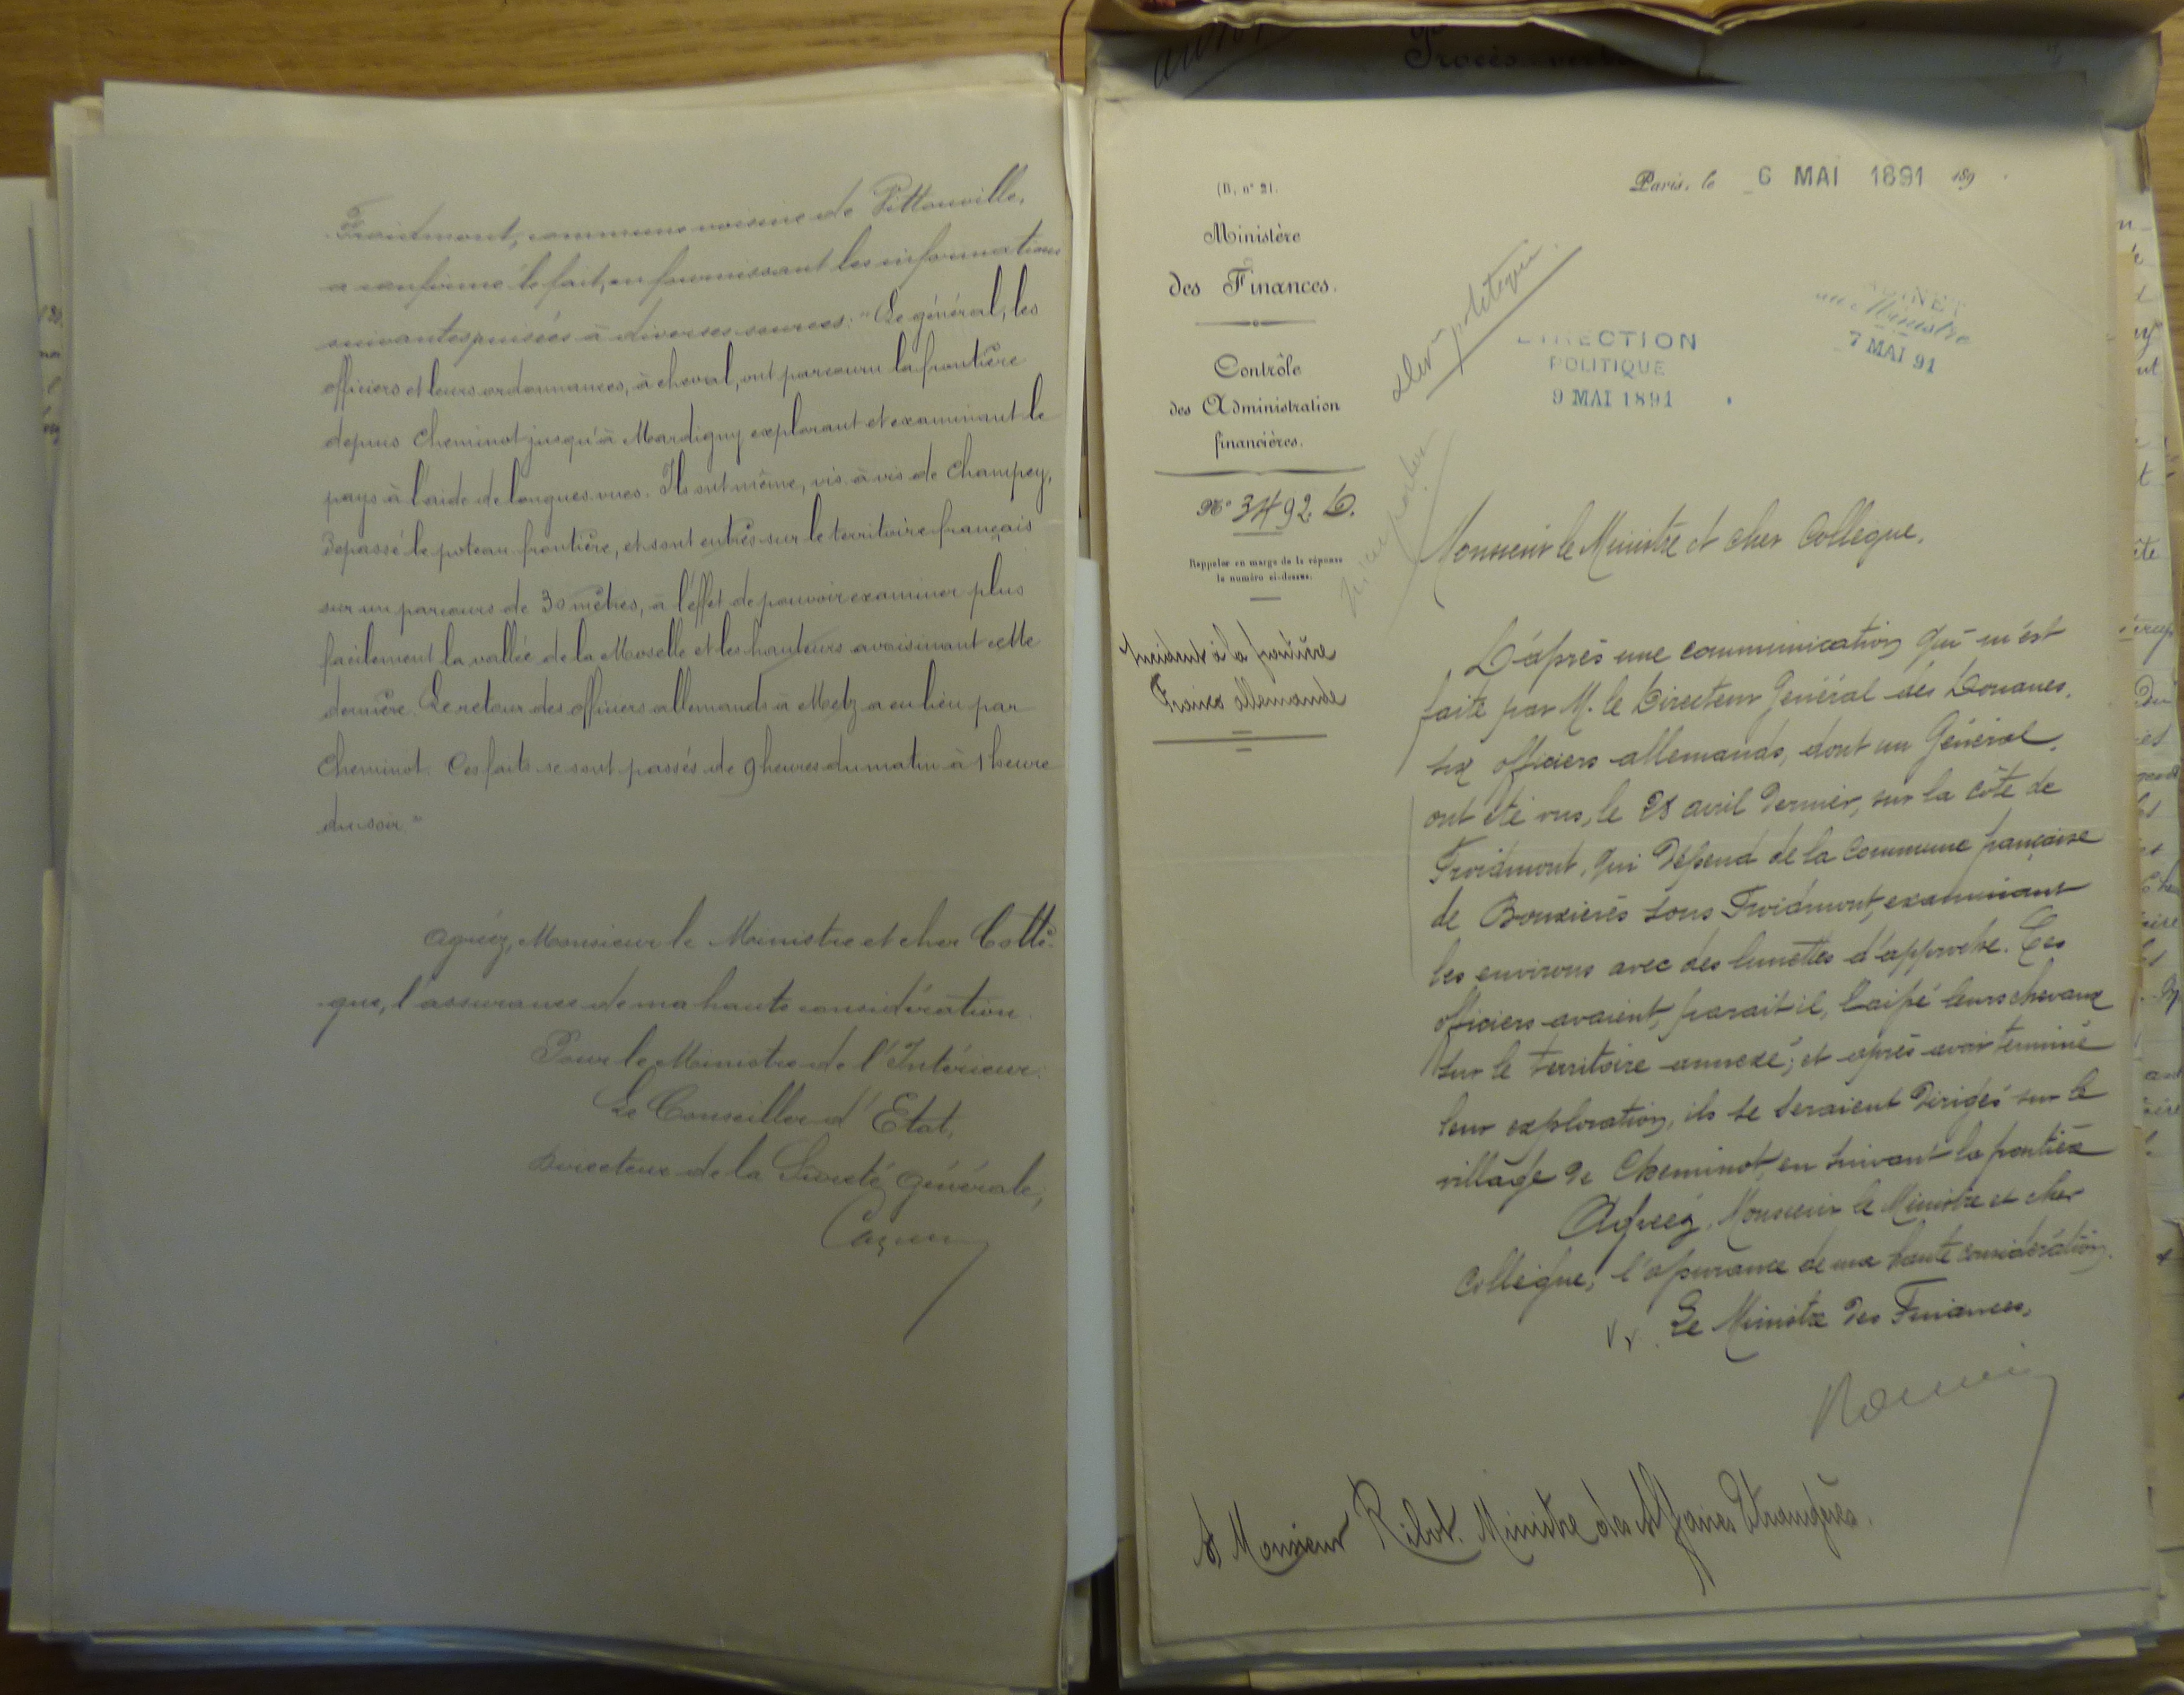 Froidmont, commune voisine de Vittonville,
a confirmé le fait, en fournissant les informations
suivantes puisées à diverses sources: "Le général, les
officiers et leurs ordonnances, à cheval, ont parcouru la frontière
depuis Cheminot jusqu'à Mardigny explorant et examinant le
pays à l'aide de longues vues. Ils ont même, vis à vis de Champey,
dépassé le poteau frontière, et sont entrés sur le territoire français
sur un parcours de 30 mètres, à l'effet de pouvoir examiner plus
facilement la vallée de la Moselle et les hauteurs avoisinant cette
dernière. Le retour des officiers allemands à Metz a eu lieu par
Cheminot. Ces faits se sont passés de 9 heures du matin à 1 heure
du soir"
Agréez, Monsieur le Ministre et cher Collè-
gue, l'assurance de ma haute considération.
Pour le Ministre de l'Intérieur:
Le Conseiller d'Etat,
Directeur de la Sureté Générale,
(B. n° 21.
Ministère
des Finances.
Contrôle
des Administration
financières.
N° 3492. D.
Rappeler en marge de la réponse
le numéro ci-dessus.
Incident à la frontière
Franco allemande
Paris, le 6 MAI 1891 189
DIRECTION
POLITIQUE
9 MAI 1891
du Ministre
7 MAI 91
Monsieur le Ministre et cher Collègue,
D'après une communication qui m'est
faite par M. le Directeur Général des Douanes,
six officiers allemands, dont un Général,
ont été vus, le 28 avril dernier, sur la côte de
Froidmont, qui dépend de la Commune française
de Bouxières sous Froidmont, examinant
les environs avec des lunettes d'approche. Ces
officiers avaient, parait il, laissé leurs chevaux
sur le territoire annexé; et après avoir terminé
leur exploration, ils se seraient dirigés sur le
village de Cheminot, en suivant la frontière
Agréez, Monsieur le Ministre et cher
Collègue, l'assurance de ma haute considération.
Le Ministre des Finances,
A Monsieur Ribot. Ministre des Affaires Etrangères.